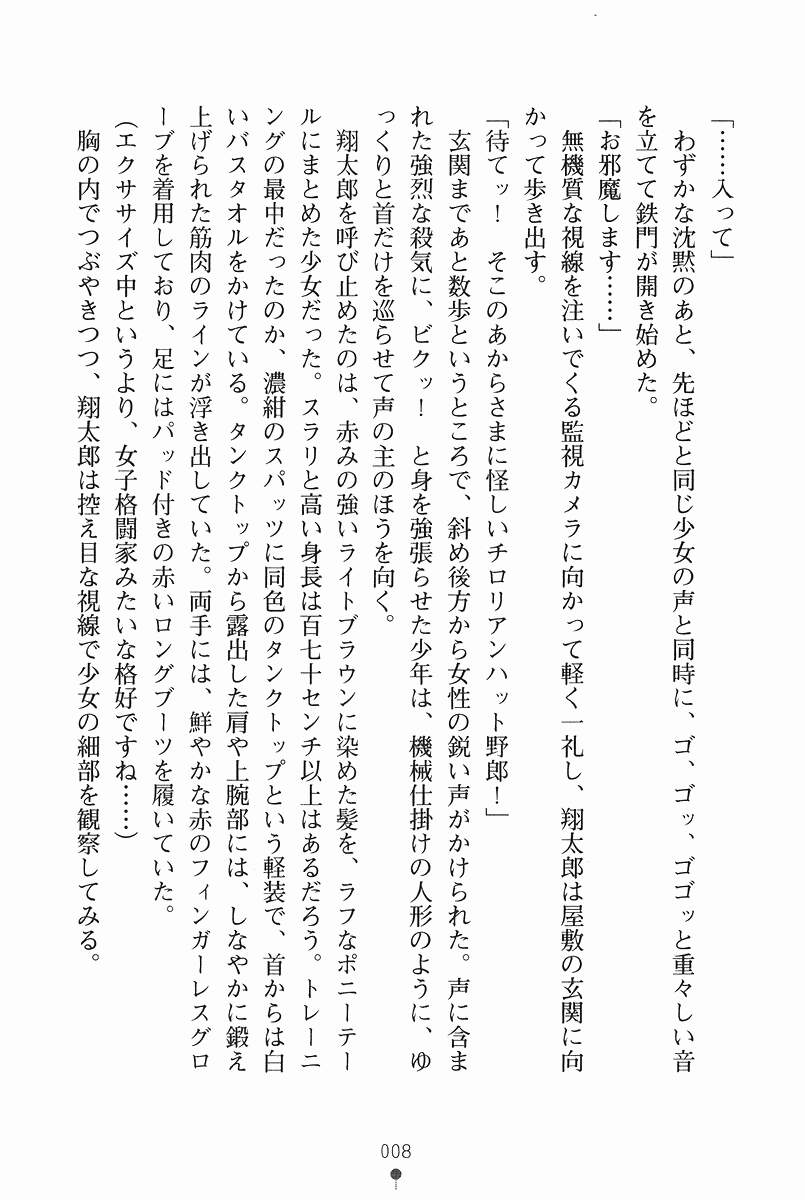 「……入って」
　わずかな沈黙のあと、先ほどと同じ少女の声と同時に、ゴ、ゴッ、ゴゴッと重々しい音
を立てて鉄門が開き始めた。
「お邪魔します……」
　無機質な視線を注いでくる監視カメラに向かって軽く一礼し、翔太郎は屋敷の玄関に向
かって歩き出す。
「待てッ！　そこのあからさまに怪しいチロリアンハット野郎！」
　玄関まであと数歩というところで、斜め後方から女性の鋭い声がかけられた。声に含ま
れた強烈な殺気に、ビクッ！　と身を強張らせた少年は、機械仕掛けの人形のように、ゆ
っくりと首だけを巡らせて声の主のほうを向く。
　翔太郎を呼び止めたのは、赤みの強いライトブラウンに染めた髪を、ラフなポニーテー
ルにまとめた少女だった。スラリと高い身長は百七十センチ以上はあるだろう。トレーニ
ングの最中だったのか、濃紺のスパッツに同色のタンクトップという軽装で、首からは白
いバスタオルをかけている。タンクトップから露出した肩や上腕部には、しなやかに鍛え
上げられた筋肉のラインが浮き出していた。両手には、鮮やかな赤のフィンガーレスグロ
ーブを着用しており、足にはパッド付きの赤いロングブーツを履いていた。
（エクササイズ中というより、女子格闘家みたいな格好ですね……）
　胸の内でつぶやきつつ、翔太郎は控え目な視線で少女の細部を観察してみる。
008